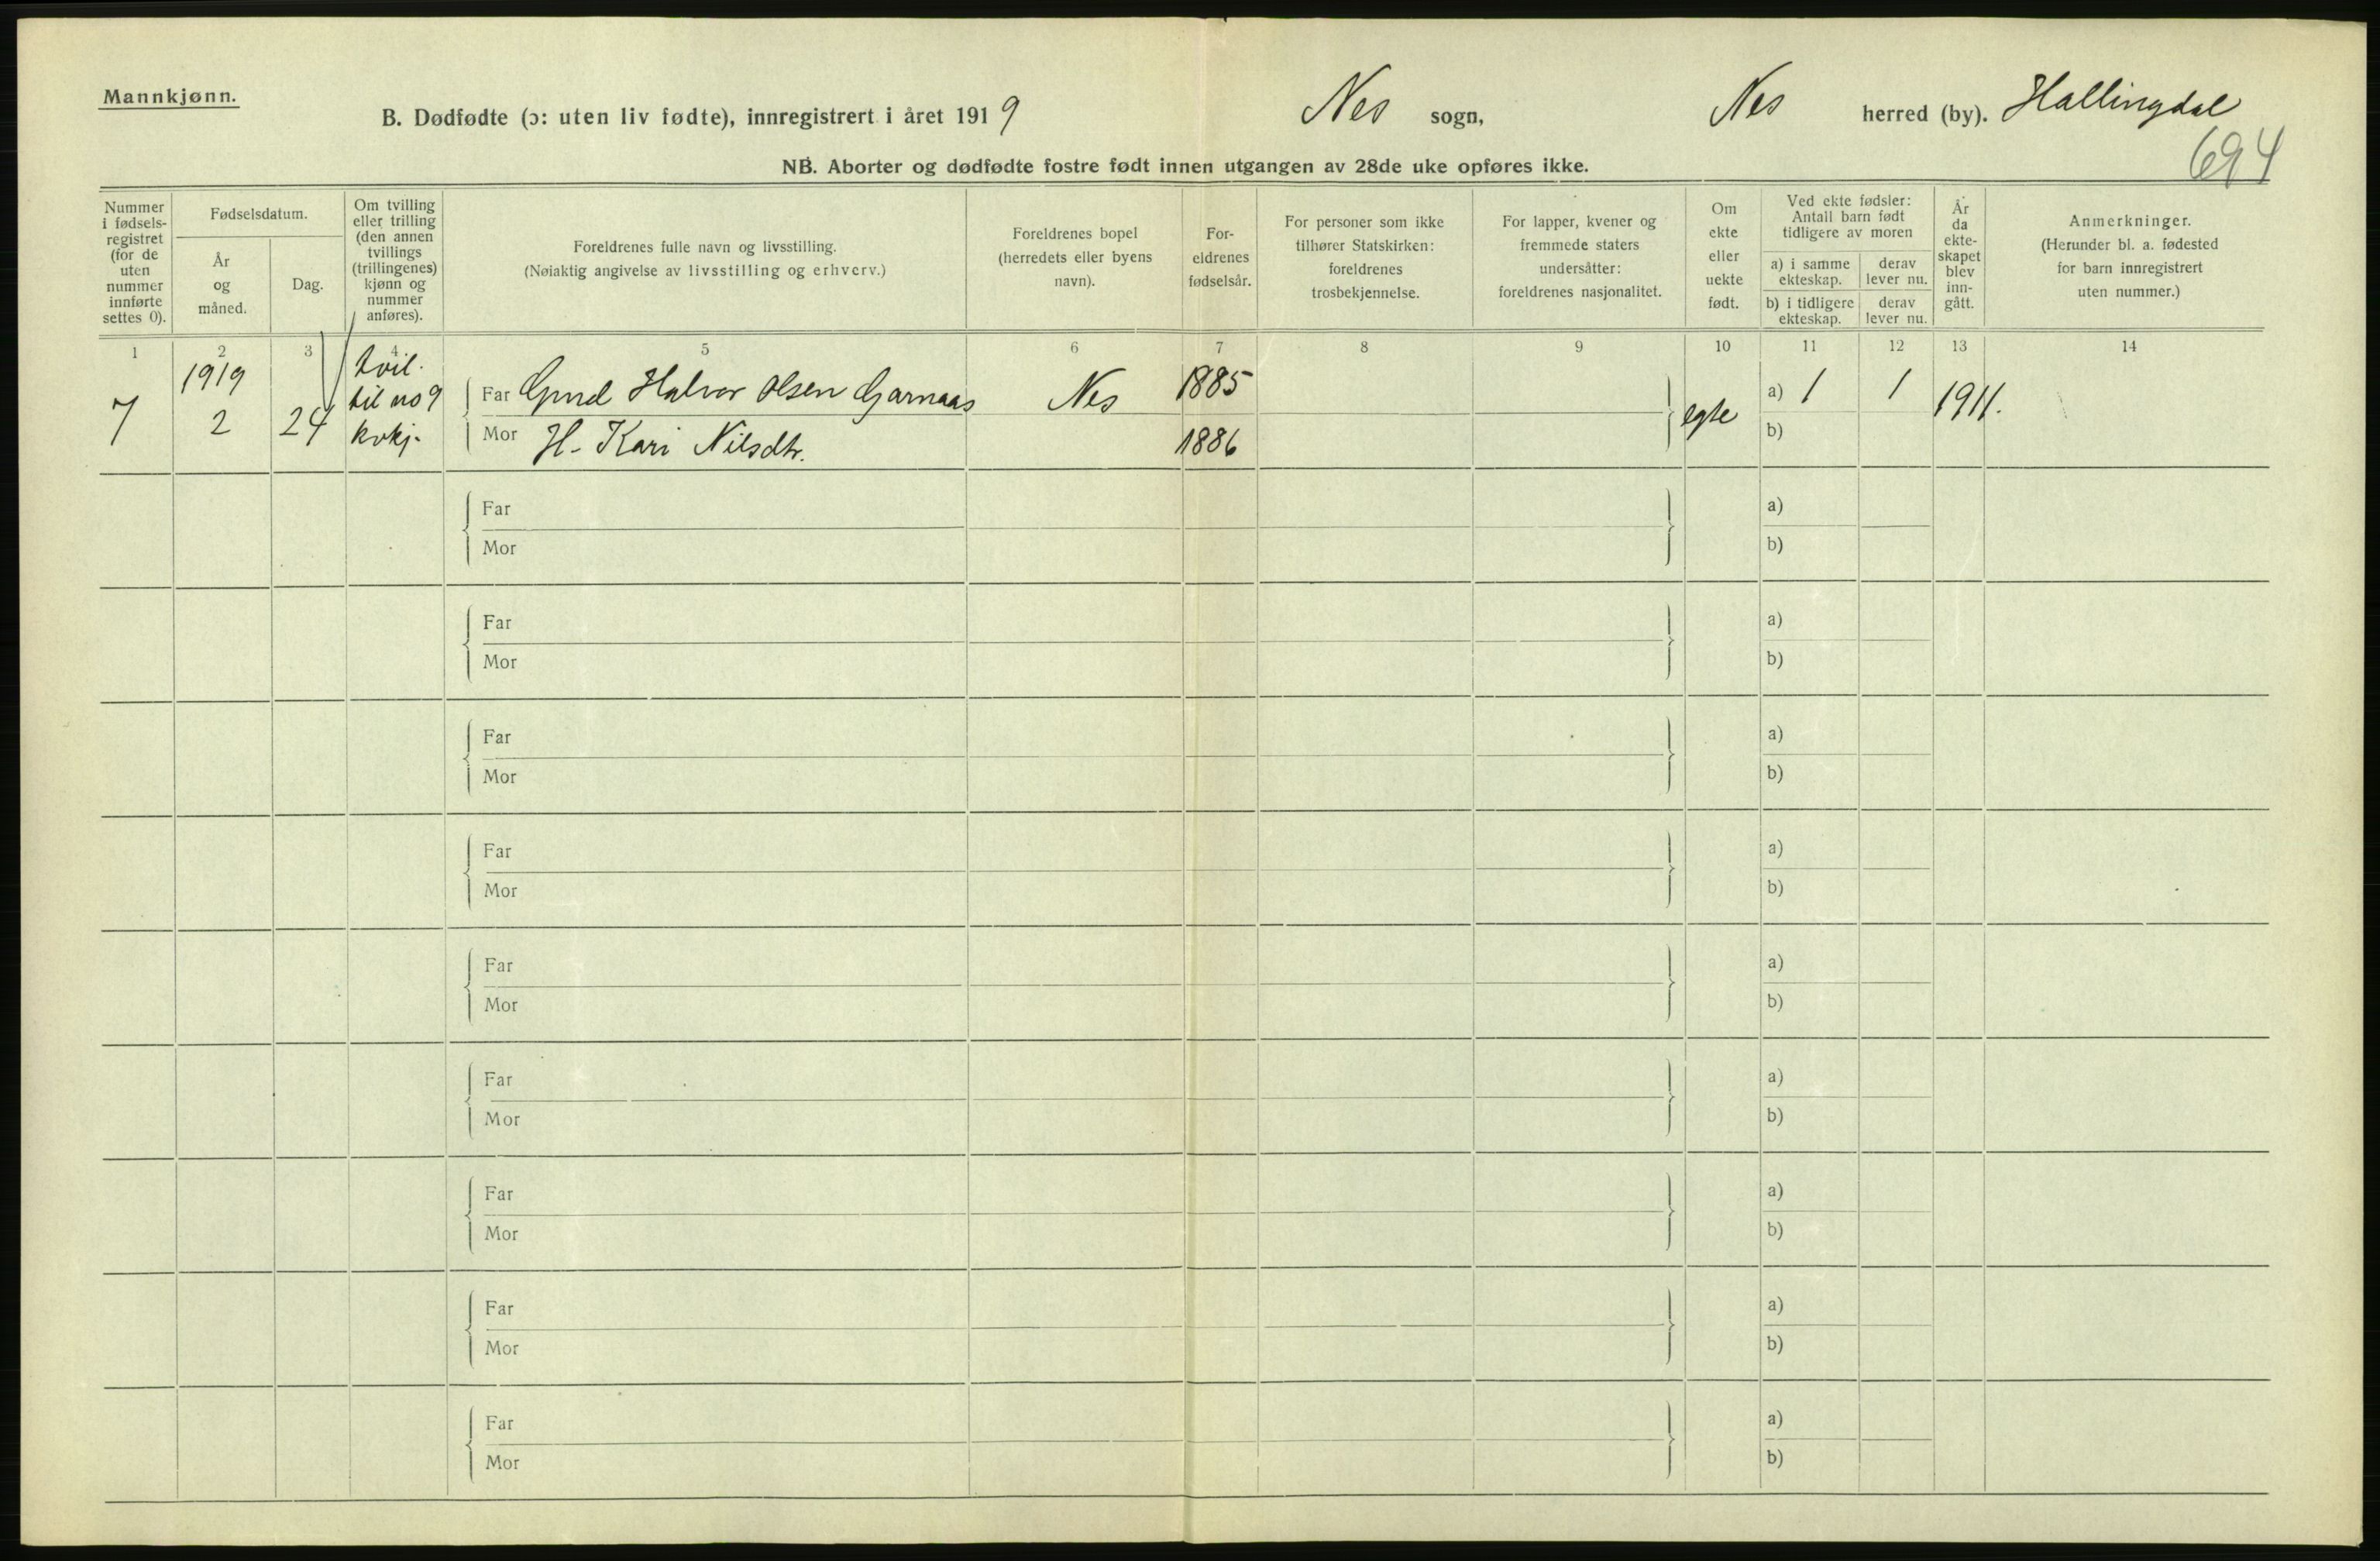 Mannkjønn.
B. Dødfødte (ɔ: uten liv fødte), innregistrert i året 1919 Nes sogn, Nes herred (by). Hallingdal
694
NB. Aborter og dødfødte fostre født innen utgangen av 28de uke opføres ikke.
Nummer i fødsels-registret (for de uten nummer innførte settes 0).
Fødselsdatum.
År og måned.
Dag.
Om tvilling eller trilling (den annen tvillings (trillingenes) kjønn og nummer anføres).
Foreldrenes fulle navn og livsstilling.
(Nøiaktig angivelse av livsstilling og erhverv.)
Foreldrenes bopel (herredets eller byens navn).
For-eldrenes fødselsår.
For personer som ikke tilhører Statskirken: foreldrenes trosbekjennelse.
For lapper, kvener og fremmede staters undersåtter: foreldrenes nasjonalitet.
Om ekte eller uekte født.
Ved ekte fødsler: Antall barn født tidligere av moren
a) i samme ekteskap.
derav lever nu.
b) i tidligere ekteskap.
derav lever nu.
År da ekte-skapet blev inn-gått.
Anmerkninger.
(Herunder bl. a. fødested for barn innregistrert uten nummer.)
1 2 3 4 5 6 7 8 9 10 11 12 13 14
7 1919 2 24 tvil. til no 9 kvkj.
Far Halvor Olsen Garnaas Nes 1885 egte a) 1 1 1911.
Mor H. Kari Nilsdtr. 1886 b)
Far a)
Mor b)
Far a)
Mor b)
Far a)
Mor b)
Far a)
Mor b)
Far a)
Mor b)
Far a)
Mor b)
Far a)
Mor b)
Far a)
Mor b)
Far a)
Mor b)